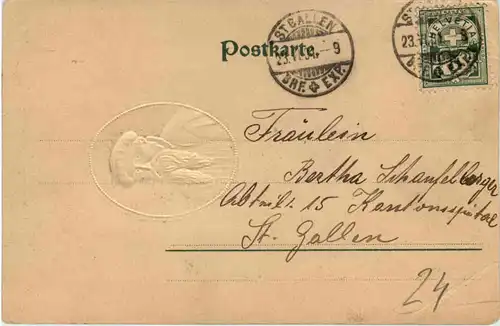 Postkarte.
ST. GALLEN
-9
BRF. EXP.
ST. GALLEN
23.
-9
BRF. EXP.
HELVETIA
Fräulein
Bertha Schaufelberger
Abteil. 15 Kantonsspital
St. Gallen
24